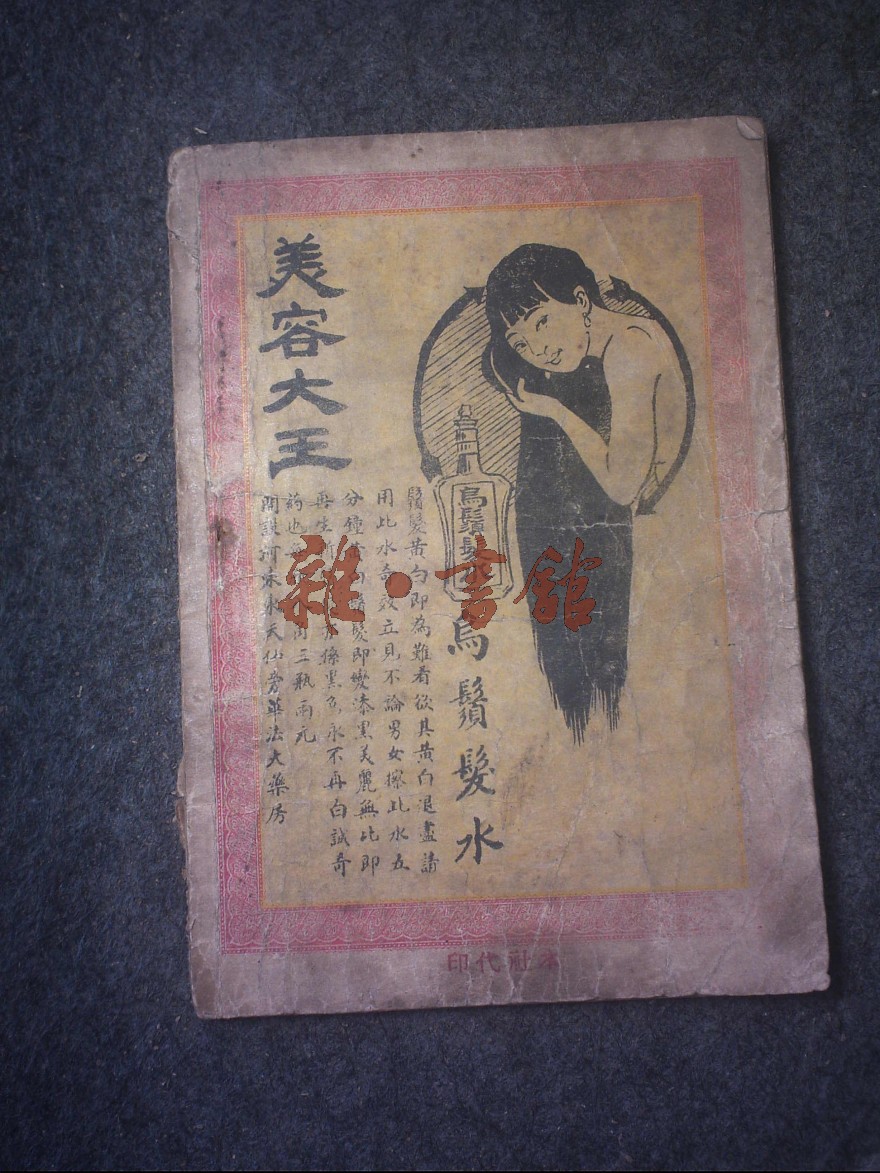 美容大王
烏鬚髮水
烏鬚髮水
鬚髮黃白即為難看欲其黃白退盡請
用此水奇效立見不論男女擦此水五
分鐘黃白鬚髮即變漆黑美麗無比即
再生亦係黑色永不再白誠奇
药也角三瓶兩元
開設河天仙旁華法大藥房
印代社本
雜·書館